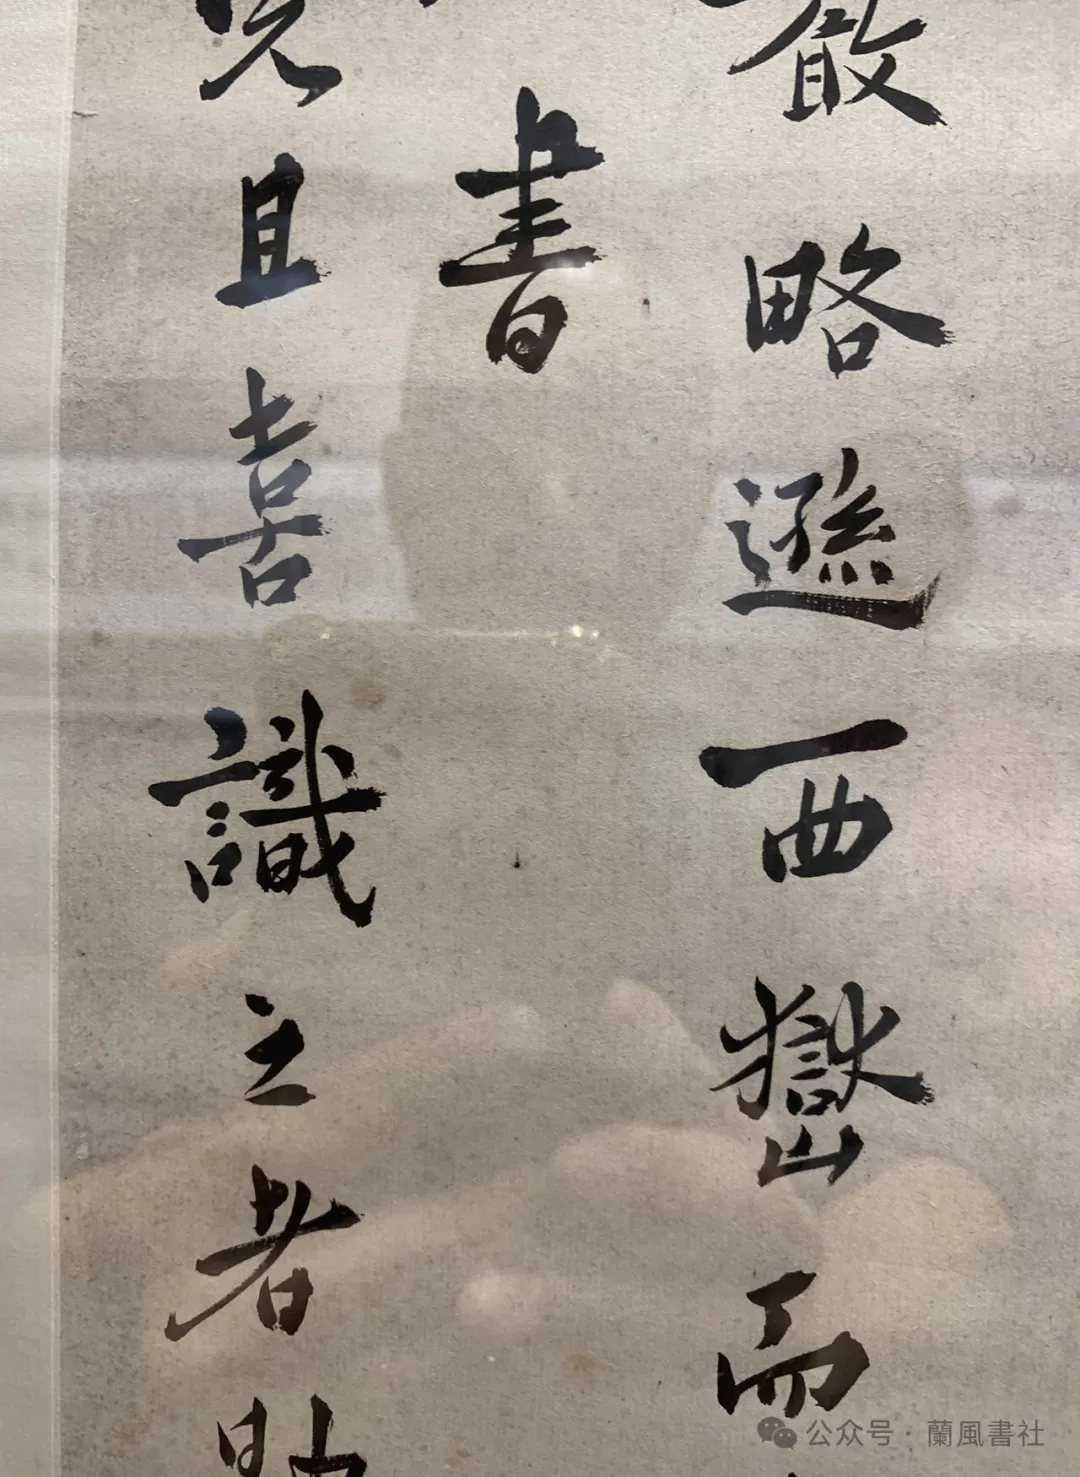 嚴略遜西嶽而
書
且喜識之者
公众号·蘭風書社